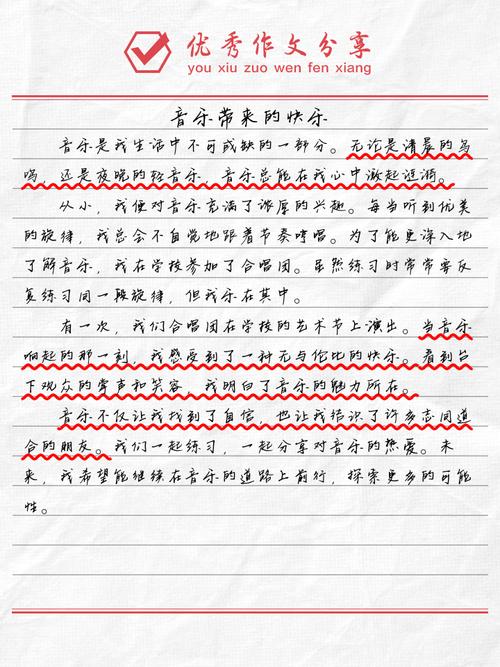 优秀作文分享
you xiu zuo wen fen xiang
音乐带来的快乐
音乐是我生活中不可或缺的一部分。无论是清晨的鸟
鸣，还是夜晚的轻音乐，音乐总能在我心中激起涟漪。
从小，我便对音乐充满了浓厚的兴趣。每当听到优美
的旋律，我总会不自觉地跟着节奏哼唱。为了能更深入地
了解音乐，我在学校参加了合唱团。虽然练习时常常要反
复练习同一段旋律，但我乐在其中。
有一次，我们合唱团在学校的艺术节上演出。当音乐
响起的那一刻，我感受到了一种无与伦比的快乐。看到台
下观众的掌声和笑容，我明白了音乐的魅力所在。
音乐不仅让我找到了自信，也让我结识了许多志同道
合的朋友。我们一起练习，一起分享对音乐的热爱。未
来，我希望能继续在音乐的道路上前行，探索更多的可能
性。